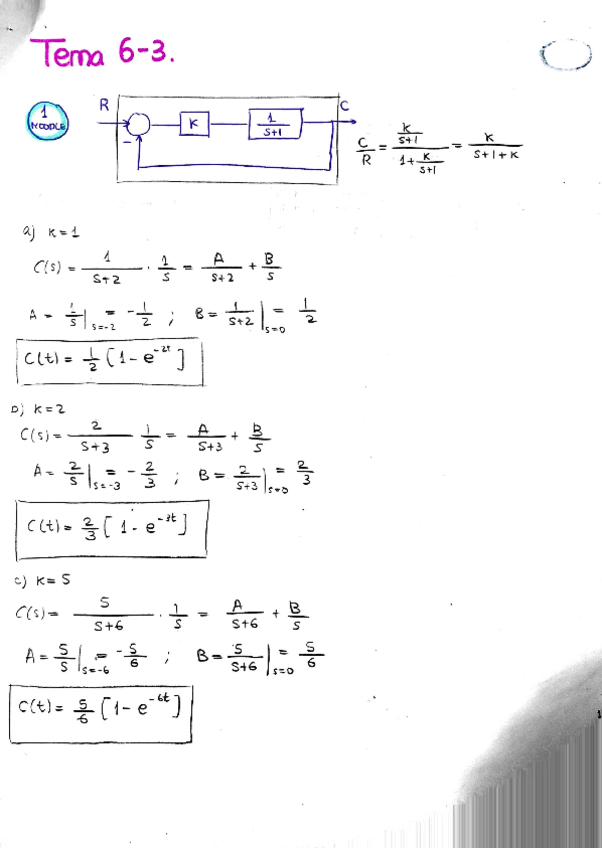 Tema 6-3.
1 MOODLE
R − K 1/(s+1) C
C/R = (K/(s+1))/(1+K/(s+1)) = K/(s+1+K)
a) K=1
C(s) = 1/(s+2) · 1/s = A/(s+2) + B/s
A = 1/s |s=-2 = -1/2 ; B = 1/(s+2) |s=0 = 1/2
C(t) = 1/2 [1-e^-2t]
b) K=2
C(s) = 2/(s+3) 1/s = A/(s+3) + B/s
A = 2/s |s=-3 = -2/3 ; B = 2/(s+3) |s=0 = 2/3
C(t) = 2/3 [1-e^-3t]
c) K=5
C(s) = 5/(s+6) · 1/s = A/(s+6) + B/s
A = 5/s |s=-6 = -5/6 ; B = 5/(s+6) |s=0 = 5/6
C(t) = 5/6 [1-e^-6t]
1